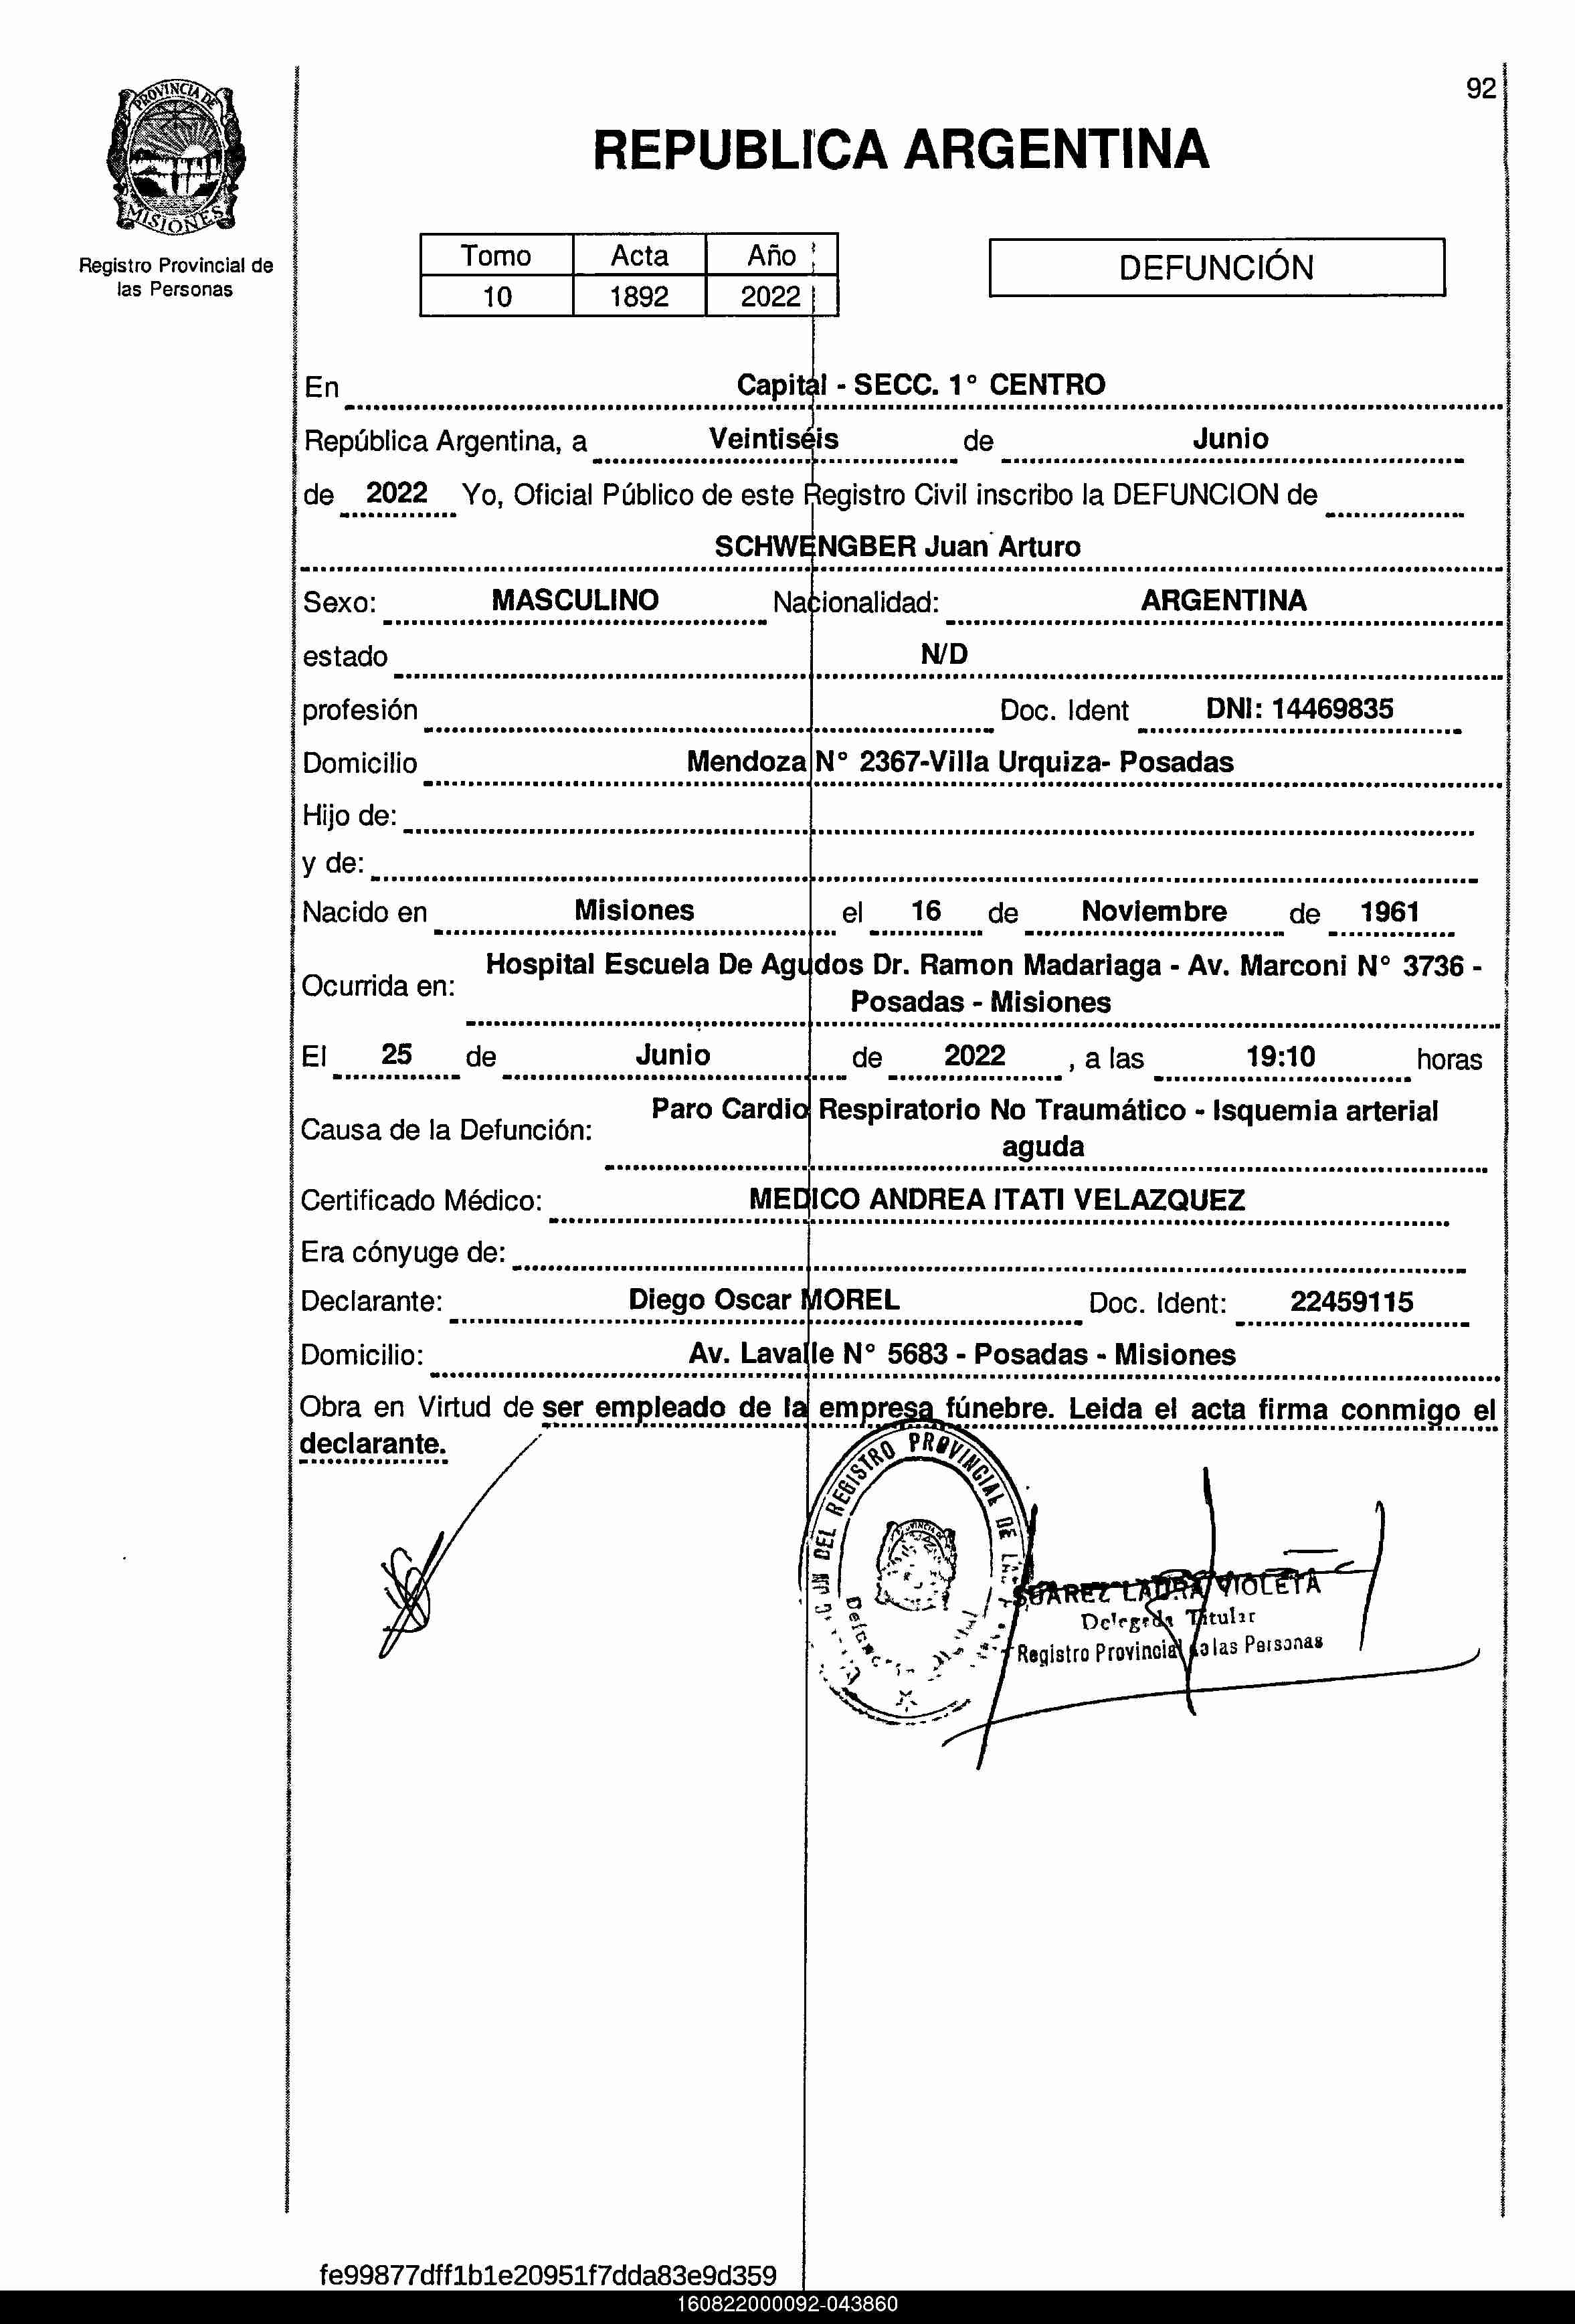 92
PROVINCIA DE
MISIONES
Registro Provincial de
las Personas
REPUBLICA ARGENTINA
Tomo Acta Año
10 1892 2022
DEFUNCIÓN
En Capital - SECC. 1° CENTRO
República Argentina, a Veintiséis de Junio
de 2022 Yo, Oficial Público de este Registro Civil inscribo la DEFUNCION de
SCHWENGBER Juan Arturo
Sexo: MASCULINO Nacionalidad: ARGENTINA
estado N/D
profesión Doc. Ident DNI: 14469835
Domicilio Mendoza N° 2367-Villa Urquiza- Posadas
Hijo de:
y de:
Nacido en Misiones el 16 de Noviembre de 1961
Ocurrida en: Hospital Escuela De Agudos Dr. Ramon Madariaga - Av. Marconi N° 3736 -
Posadas - Misiones
El 25 de Junio de 2022 , a las 19:10 horas
Causa de la Defunción: Paro Cardio Respiratorio No Traumático - Isquemia arterial
aguda
Certificado Médico: MEDICO ANDREA ITATI VELAZQUEZ
Era cónyuge de:
Declarante: Diego Oscar MOREL Doc. Ident: 22459115
Domicilio: Av. Lavalle N° 5683 - Posadas - Misiones
Obra en Virtud de ser empleado de la empresa fúnebre. Leida el acta firma conmigo el
declarante.
DEL REGISTRO PROVINCIAL DE
SUAREZ LAURA VIOLETA
Delegada Titular
Registro Provincial de las Personas
fe99877dff1b1e20951f7dda83e9d359
160822000092-043860